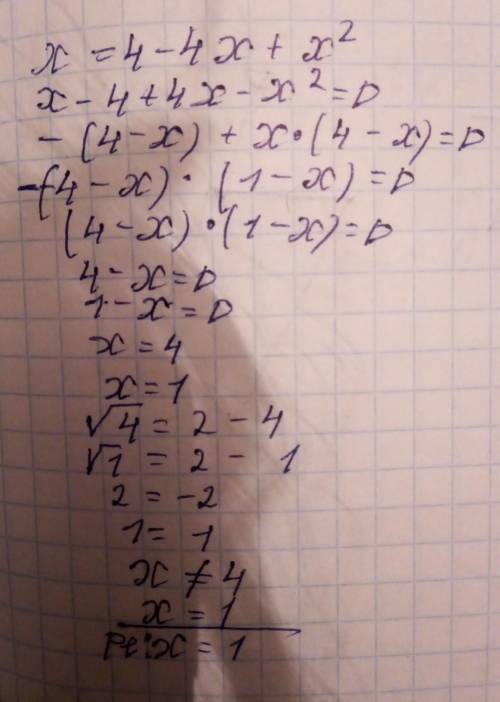 x = 4 - 4x + x²
x - 4 + 4x - x² = 0
- (4 - x) + x · (4 - x) = 0
-(4 - x) · (1 - x) = 0
(4 - x) · (1 - x) = 0
4 - x = 0
1 - x = 0
x = 4
x = 1
√4 = 2 - 4
√1 = 2 - 1
2 = -2
1 = 1
x ≠ 4
x = 1
Ре: x = 1